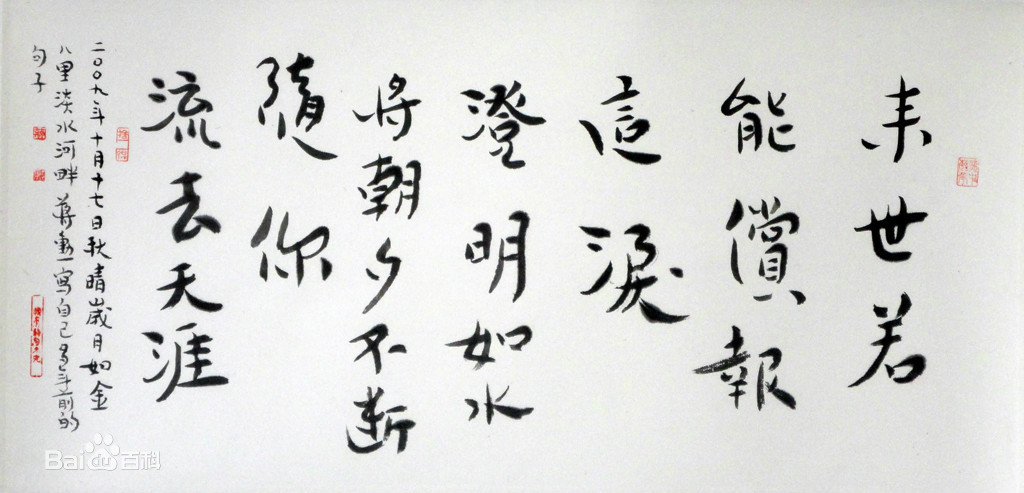 来世若
能償報
這淚
澄明如水
将朝夕不断
隨你
流去天涯
二００九年十月十七日秋晴歲月如金
八里淡水河畔蔣勳寫自己多年前的
句子
Baidu百科